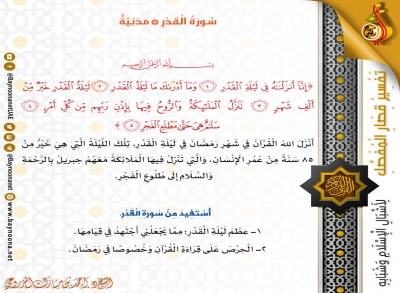 سُورَةُ الْقَدْرِ مَدَنِيَّةٌ
بِسْمِ اللَّهِ الرَّحْمَٰنِ الرَّحِيمِ
﴿إِنَّا أَنزَلْنَاهُ فِي لَيْلَةِ الْقَدْرِ ١ وَمَا أَدْرَاكَ مَا لَيْلَةُ الْقَدْرِ ٢ لَيْلَةُ الْقَدْرِ خَيْرٌ مِّنْ
أَلْفِ شَهْرٍ ٣ تَنَزَّلُ الْمَلَائِكَةُ وَالرُّوحُ فِيهَا بِإِذْنِ رَبِّهِم مِّن كُلِّ أَمْرٍ ٤
سَلَامٌ هِيَ حَتَّىٰ مَطْلَعِ الْفَجْرِ ٥﴾
أَنْزَلَ اللهُ الْقُرْآنَ فِي شَهْرِ رَمَضَانَ فِي لَيْلَةِ الْقَدْرِ، تِلْكَ اللَّيْلَةُ الَّتِي هِيَ خَيْرٌ مِنْ
٨٥ سَنَةً مِنْ عُمْرِ الْإِنْسَانِ، وَالَّتِي تَنْزِلُ فِيهَا الْمَلَائِكَةُ مَعَهُمْ جِبْرِيلُ بِالرَّحْمَةِ
وَالسَّلَامِ إِلَى طُلُوعِ الْفَجْرِ.
أَسْتَفِيدُ مِنْ سُورَةِ الْقَدْرِ:
١- عِظَمَ لَيْلَةِ الْقَدْرِ؛ مِمَّا يَجْعَلُنِي أَجْتَهِدُ فِي قِيَامِهَا.
٢- الْحِرْصَ عَلَى قِرَاءَةِ الْقُرْآنِ وَخُصُوصًا فِي رَمَضَانَ.
تَفْسِيرُ قِصَارِ الْمُفَصَّلِ
لِأَشْبَالِ الْإِسْلَامِ وَشَبَابِهِ
@BaynoonanetUAE
@Baynoonanet
www.baynoona.net